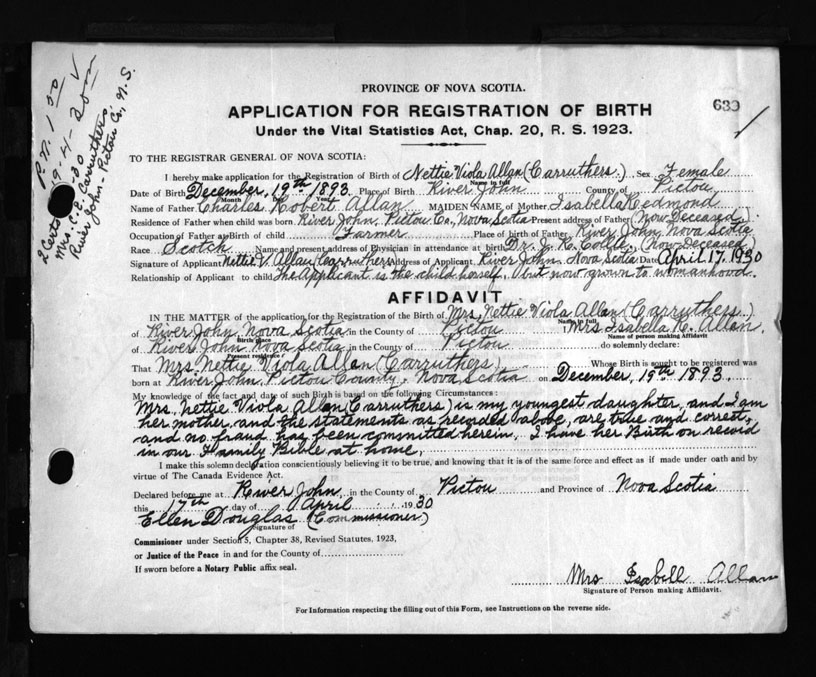 PROVINCE OF NOVA SCOTIA.
APPLICATION FOR REGISTRATION OF BIRTH
Under the Vital Statistics Act, Chap. 20, R. S. 1923.
633
P.N. 1 00
19-4-30
2 Certs
Mrs. C. E. Carruthers
River John, Pictou Co, N. S.
TO THE REGISTRAR GENERAL OF NOVA SCOTIA:
I hereby make application for the Registration of Birth of Nettie Viola Allan (Carruthers.) Sex Female
Name in full
Date of Birth December, 19th 1893 Place of Birth River John County of Pictou
Month Day Year
Name of Father Charles Robert Allan MAIDEN NAME of Mother Isabella Redmond
Residence of Father when child was born River John, Pictou Co, Nova Scotia Present address of Father (Now Deceased)
Occupation of Father at Birth of child Farmer Place of birth of Father River John, Nova Scotia
Race Scotch Name and present address of Physician in attendance at birth Dr. (Now Deceased)
Signature of Applicant Nettie V. Allan (Carruthers) Address of Applicant River John, Nova Scotia Date April 17, 1930
Relationship of Applicant to child The Applicant is the child herself, but now grown to womanhood.
AFFIDAVIT
IN THE MATTER of the application for the Registration of the Birth of Mrs. Nettie Viola Allan (Carruthers.)
Name in full
of River John, Nova Scotia in the County of Pictou Mrs Isabella R. Allan,
Birth place Name of person making Affidavit
of River John, Nova Scotia in the County of Pictou do solemnly declare:
Present residence
That Mrs. Nettie Viola Allan (Carruthers) Whose Birth is sought to be registered was
born at River John, Pictou County, Nova Scotia on December, 19th 1893.
My knowledge of the fact and date of such Birth is based on the following Circumstances:
Mrs. Nettie Viola Allan (Carruthers) is my youngest daughter, and I am
her mother, and the statements as recorded above, are true and correct,
and no fraud has been committed herein. I have her Birth on record
in our Family Bible at home.
I make this solemn declaration conscientiously believing it to be true, and knowing that it is of the same force and effect as if made under oath and by
virtue of The Canada Evidence Act.
Declared before me at River John, in the County of Pictou and Province of Nova Scotia
this 17th day of April 1930
Ellen Douglas (Commissioner)
Signature of
Commissioner under Section 5, Chapter 38, Revised Statutes, 1923,
or Justice of the Peace in and for the County of
If sworn before a Notary Public affix seal.
Mrs Isabell Allan
Signature of Person making Affidavit.
For Information respecting the filling out of this Form, see Instructions on the reverse side.